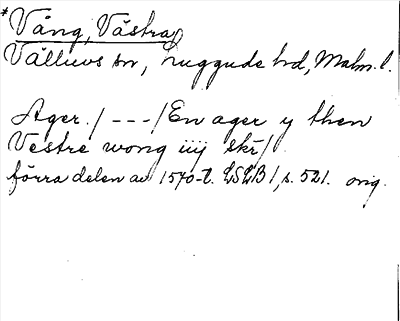 *Vång, Västra
Välluvs sn, Luggude hd, Malm. l.
Ager. / --- / En ager y then
Vestre wong iiij skr /
förra delen av 1540-t. LSLB 1, s. 521. orig.